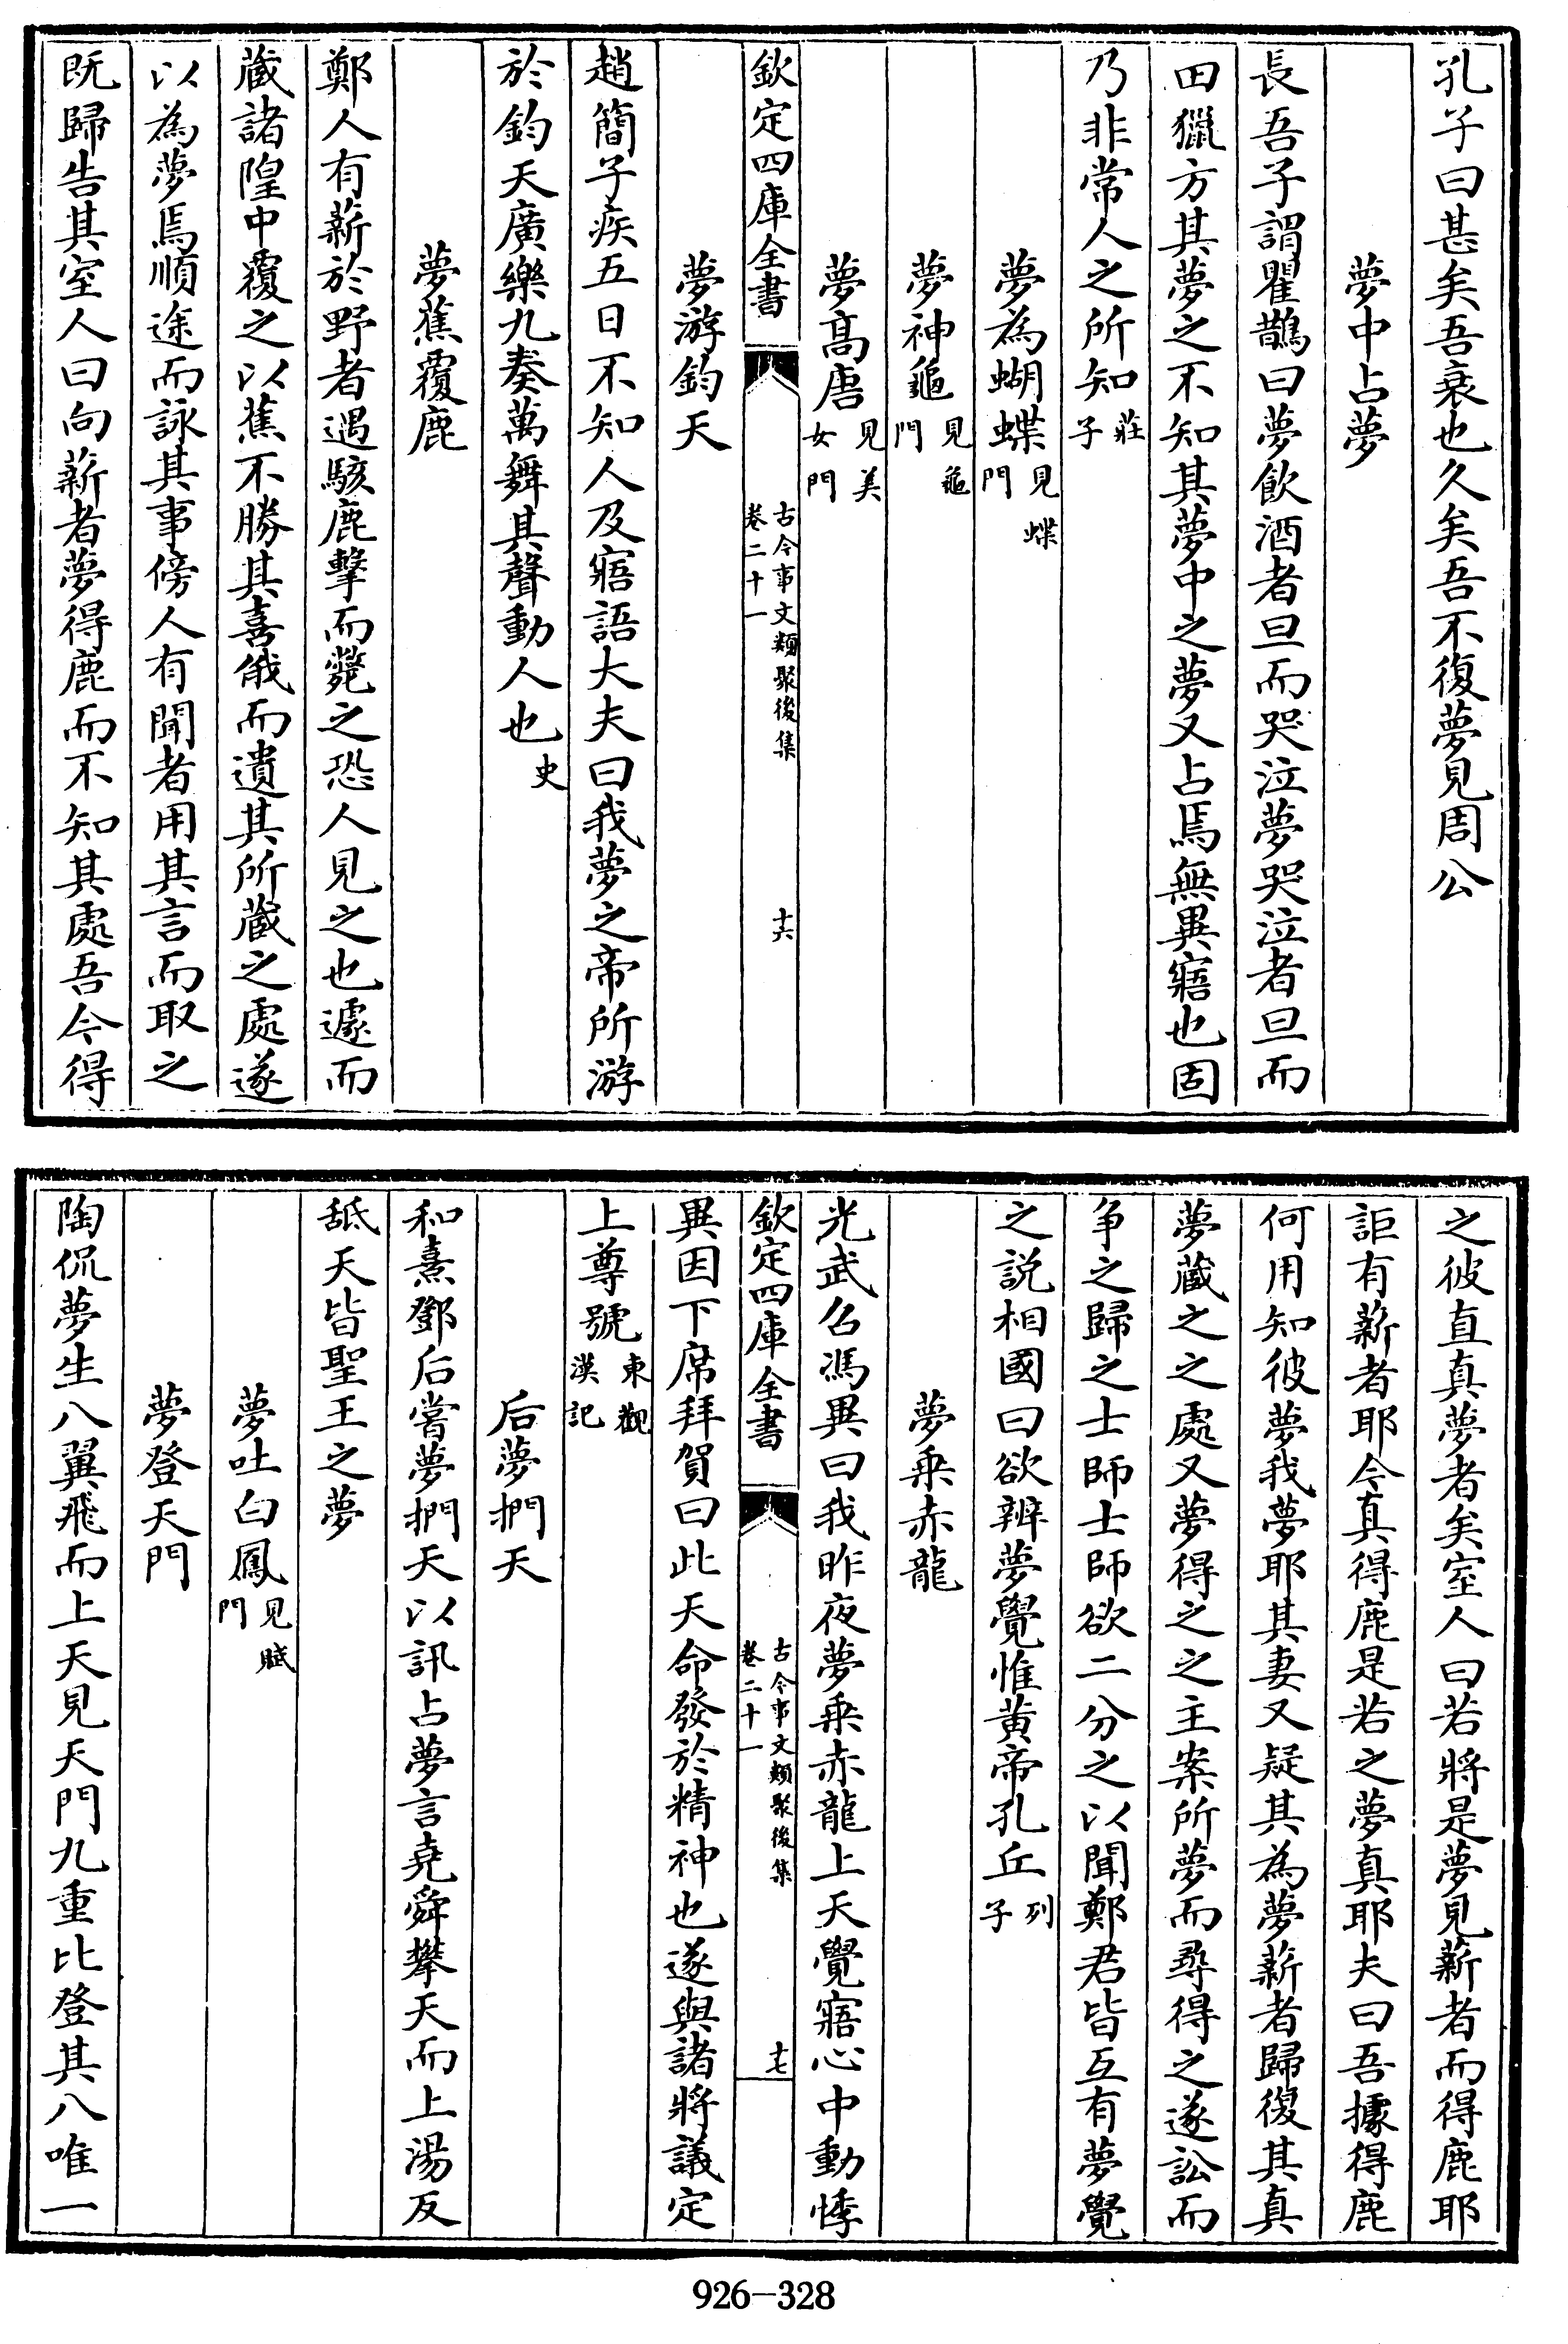 孔子曰甚矣吾衰也久矣吾不復夢見周公
夢中占夢
長吾子謂瞿鵲曰夢飲酒者旦而哭泣夢哭泣者旦而
田獵方其夢之不知其夢中之夢又占焉無異寤也固
乃非常人之所知莊子
夢為蝴蝶見蝶門
夢神龜見龜門
夢高唐見美女門
欽定四庫全書
古今事文類聚後集
卷二十一
十六
夢游鈞天
趙簡子疾五日不知人及寤語大夫曰我夢之帝所游
於鈞天廣樂九奏萬舞其聲動人也史
夢蕉覆鹿
鄭人有薪於野者遇駭鹿擊而斃之恐人見之也遽而
藏諸隍中覆之以蕉不勝其喜俄而遺其所藏之處遂
以為夢焉順途而詠其事傍人有聞者用其言而取之
既歸告其室人曰向薪者夢得鹿而不知其處吾今得
之彼直真夢者矣室人曰若將是夢見薪者而得鹿耶
詎有薪者耶今真得鹿是若之夢真耶夫曰吾據得鹿
何用知彼夢我夢耶其妻又疑其為夢薪者歸復其真
夢藏之之處又夢得之之主案所夢而尋得之遂訟而
争之歸之士師士師欲二分之以聞鄭君皆互有夢覺
之說相國曰欲辨夢覺惟黄帝孔丘列子
夢乗赤龍
光武召馮異曰我昨夜夢乗赤龍上天覺寤心中動悸
異因下席拜賀曰此天命發於精神也遂與諸將議定
上尊號東觀漢記
后夢捫天
和熹鄧后嘗夢捫天以訊占夢言堯舜攀天而上湯反
舐天皆聖王之夢
夢吐白鳳見賦門
夢登天門
陶侃夢生八翼飛而上天見天門九重比登其八唯一
欽定四庫全書
古今事文類聚後集
卷二十一
十七
926-328